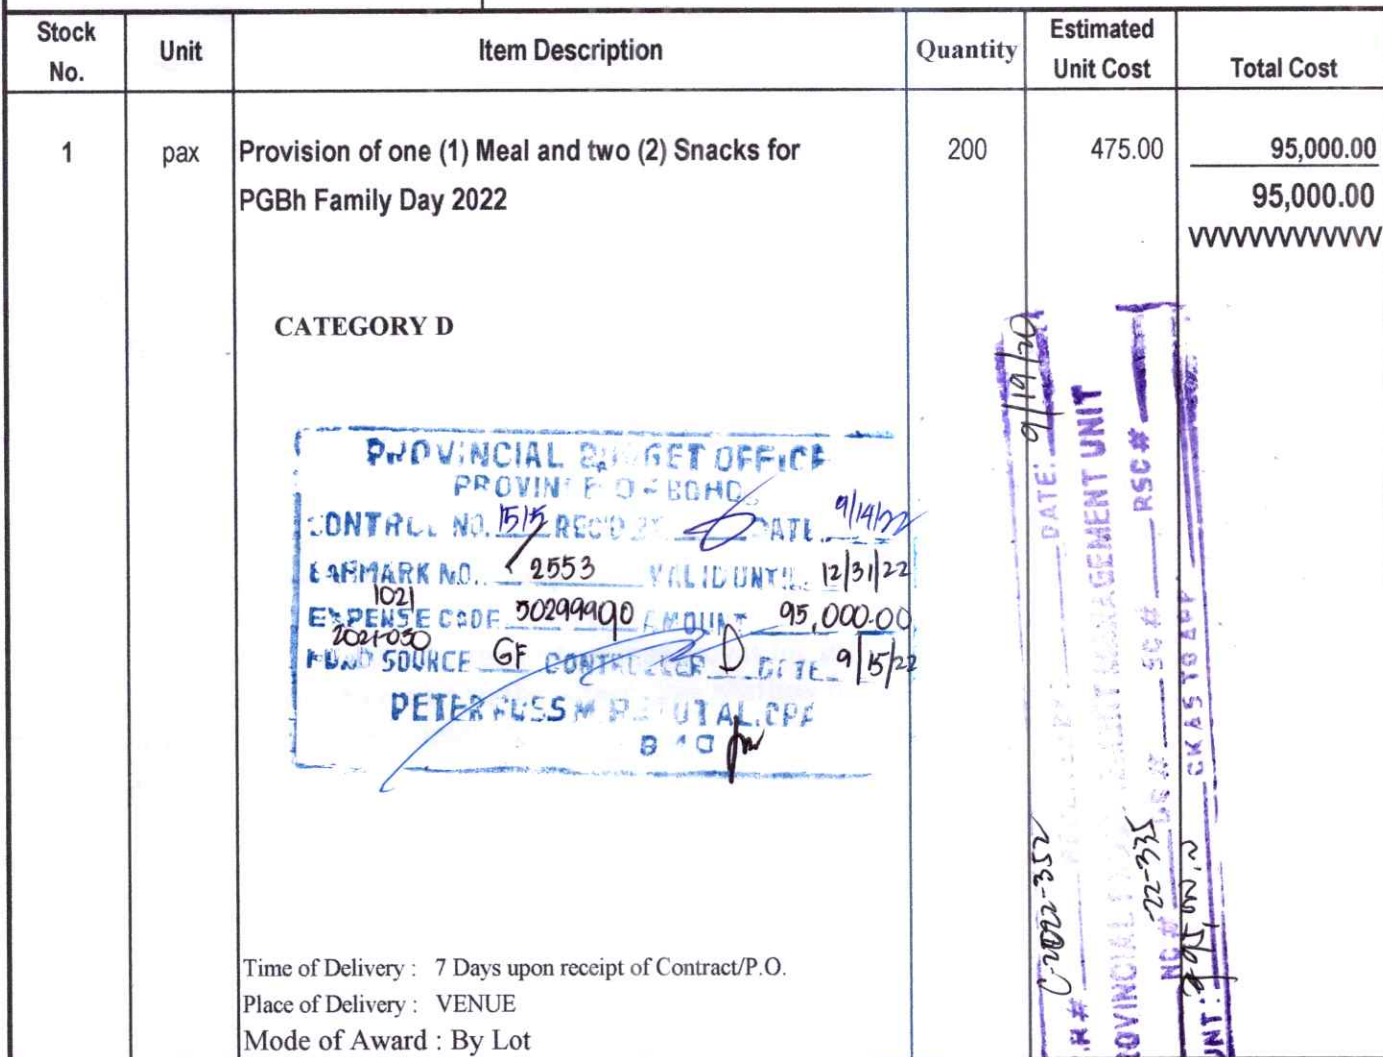 Stock No. Unit Item Description Quantity Estimated Unit Cost Total Cost
1 pax Provision of one (1) Meal and two (2) Snacks for 200 475.00 95,000.00
PGBh Family Day 2022 95,000.00
VVVVVVVVVVVVV
CATEGORY D
PROVINCIAL BUDGET OFFICE
PROVINCE OF BOHOL
CONTROL NO. 1515 REC'D BY DATE 9/14/22
EARMARK NO. 2553 VALID UNTIL 12/31/22
1021
EXPENSE CODE 50299990 AMOUNT 95,000.00
2021-030
FUND SOURCE GF CONTROLLER D DATE 9/15/22
PETER
Time of Delivery : 7 Days upon receipt of Contract/P.O.
Place of Delivery : VENUE
Mode of Award : By Lot
C-2022-352 DATE: 9/19/20
PROVINCIAL MANAGEMENT UNIT
NC # 22-335 SC # RSC #